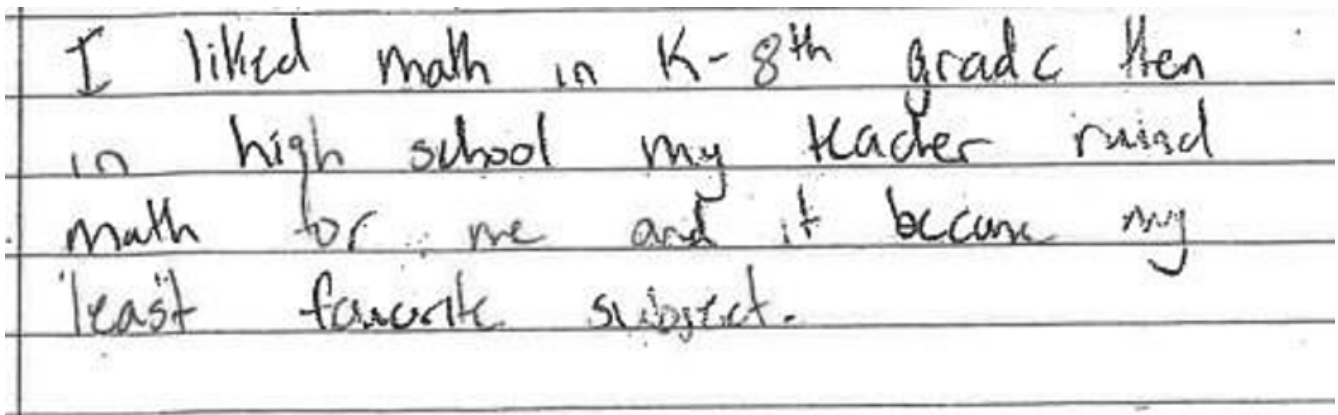 I liked math in K-8th grade then
in high school my teacher ruined
math for me and it became my
least favorite subject.